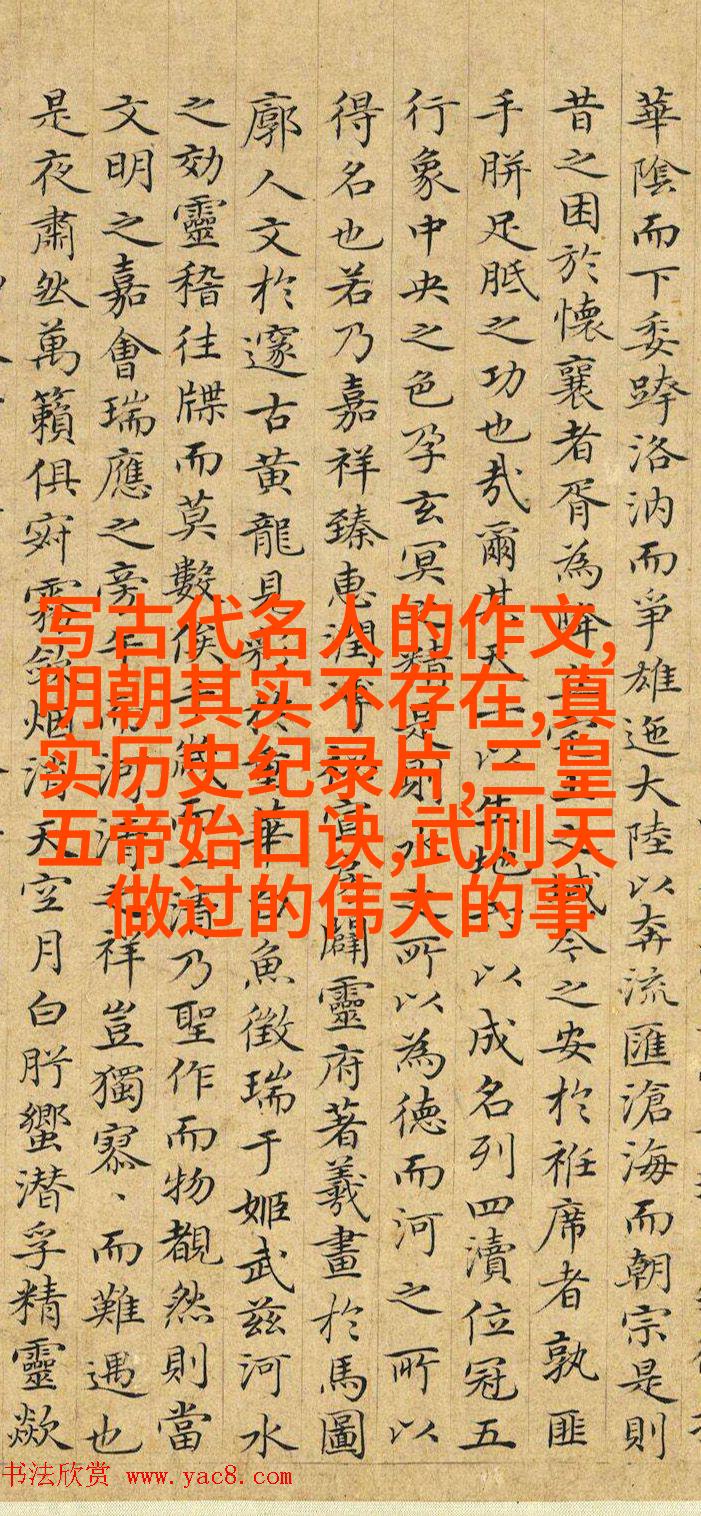 華陰而下委跨洛汭而爭雄迤大陸以奔流匯滄海而朝宗是則
昔之困於懷襄者胥為降宅土之域今之安於袵席者孰匪
手胼足胝之功也哉爾其天一以生地六以成名列四瀆位冠五
行象中央之色孕玄冥之精是則水之所以為德而河之所以
得名也若乃嘉祥臻惠潤溥闢靈府著羲畫於馬圖
廓人文於邃古黃龍見彩於華白魚徵瑞于姬武茲河水
之効靈稽往牒而莫數候千歲而一清乃聖作而物覩然則當
文明之嘉會瑞應之旁午而河清之祥豈獨寥、而難遇也
是夜肅然萬籟俱寂霧斂烟消天空月白肸蠁潛孚精靈歘
写古代名人的作文,
明朝其实不存在,真
实历史纪录片,三皇
五帝始口诀,武则天
做过的伟大的事
书法欣赏 www.yac8.com